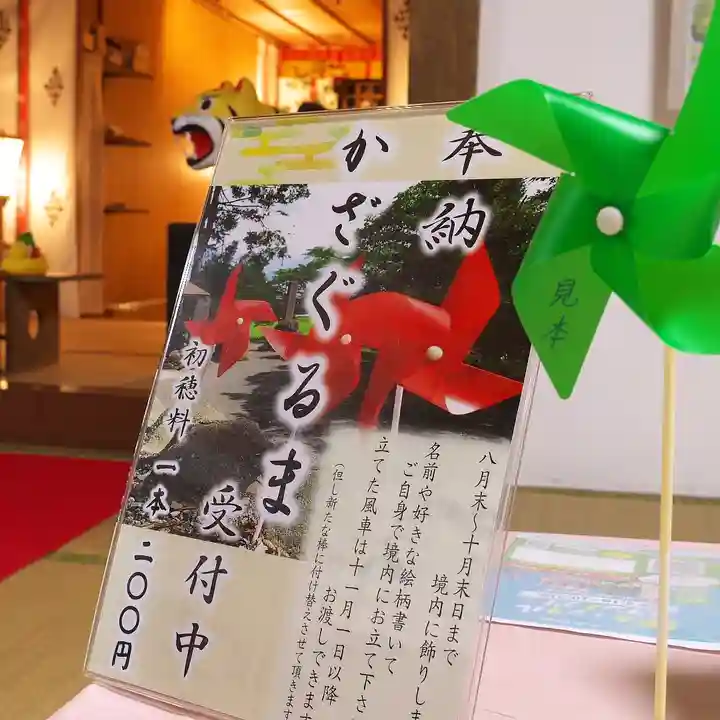 奉納
かざぐるま
受付中
初穂料 一本 二〇〇円
八月末〜十月末日まで
境内に飾りしま
名前や好きな絵柄書いて
ご自身で境内にお立て下さ
立てた風車は十一月一日以降
お渡しできます
(但し新たな棒に付け替えさせて頂きます
見本